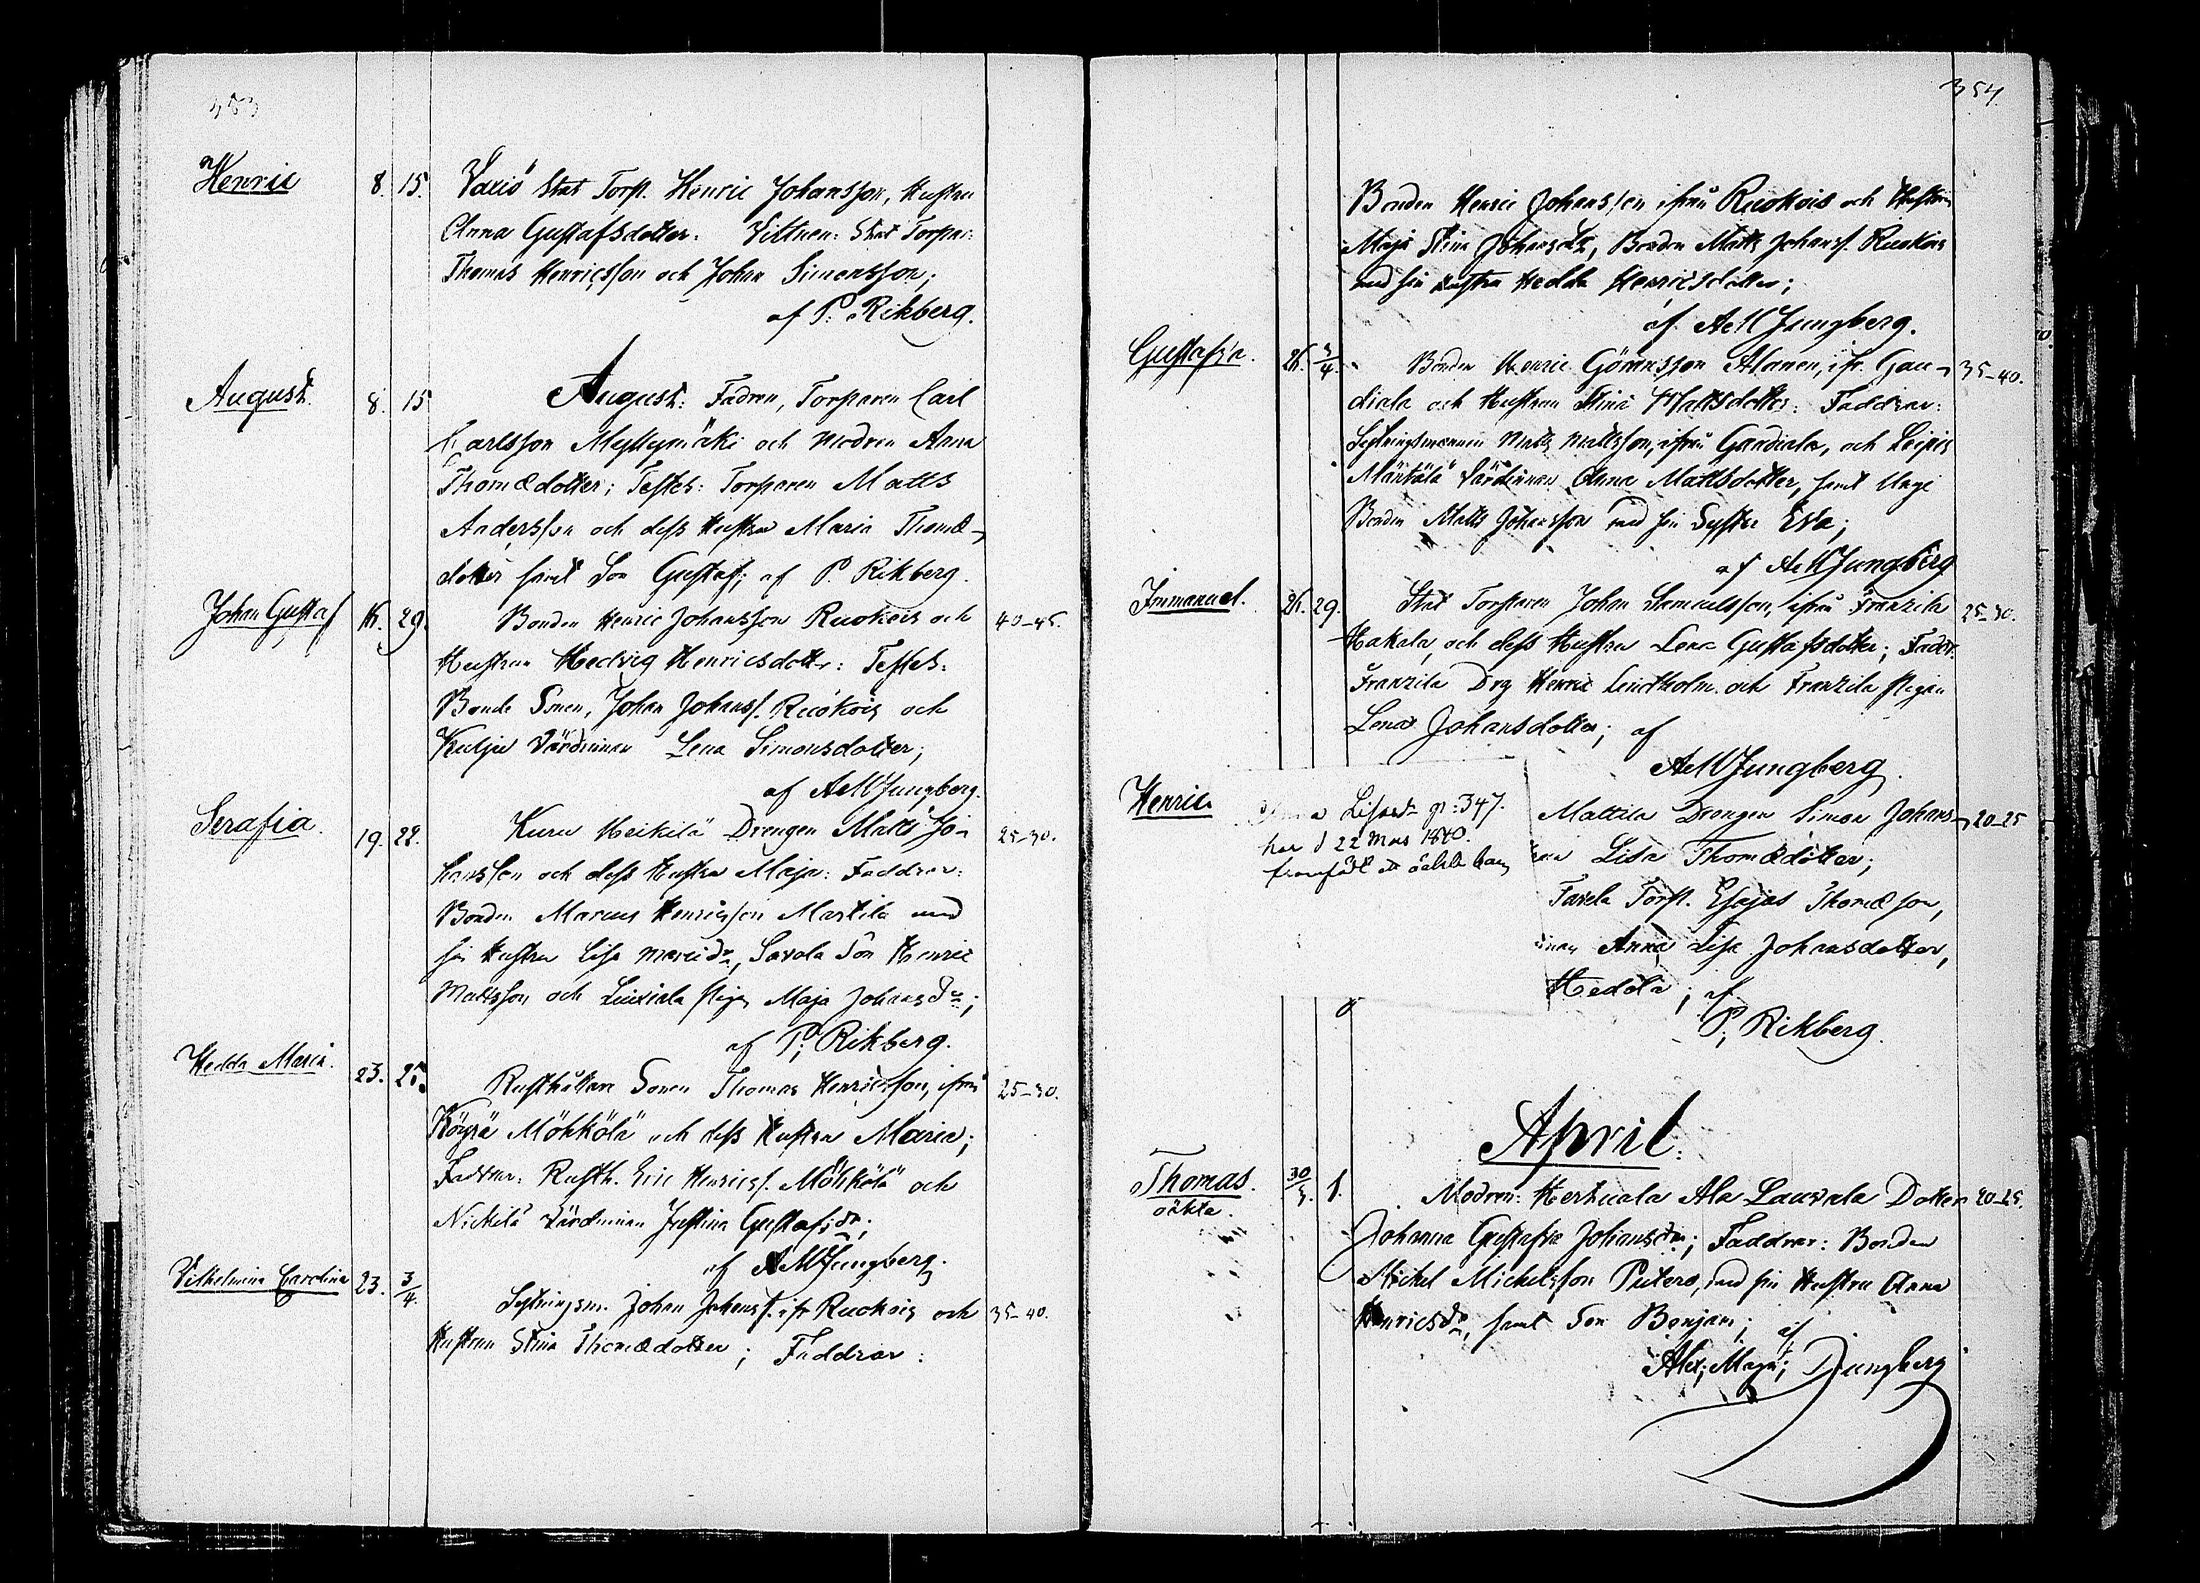 353
Henric 8. 15. Stat Torp. Henric Johansson, Hustru
Anna Gustafsdotter. Vittnen: Stat Torpar:
Thomas Henricsson och Johan Simonsson;
af P. Rikberg.
August. 8. 15 August: Fadren, Torparen Carl
Carlsson Myllymäki och modren Anna
Thomædotter; Testes: Torparen Matts
Andersson och dess Hustru Maria Thomæ-
dotter samt Son Gustaf; af P. Rikberg.
Johan Gustaf 16. 29. Bonden Henric Johansson Ruokois och 40-45.
Hustrun Hedvig Henricsdotter: Testes:
Bonde Sonen, Johan Johanss. Ruokois och
Värdinnan Lena Simonsdotter;
af AeMDjungberg.
Serafia. 19. 22. Heikilä Drengen Matts Jo- 25-30.
hansson och dess Hustru Maja: Faddrar:
Bonden Marcus Henricsson Martila med
sin Hustru Lisa Savola Son Henric
Mattsson och pigan Maja Johansdr;
af P; Rikberg.
Hedda Maria. 23. 25. Rusthållare Sonen Thomas Henricsson, ifrån 25-30.
Möhkölä och dess Hustru Maria;
Faddrar: Rusth. Eric Henricss. Möhkölä och
Nickilä Värdinnan Justina Gustafsdr;
af AeMDjungberg.
Vilhelmina Carolina 23. 3/4. Sytningsm. Johan Johanss. ifr Ruokois och 35-40.
Hustrun Stina Thomædotter; Faddrar:
354
Bonden Henric Johansson ifrån Ruokois och Hustrun
Maja Stina Johansdtr, Bonden Matts Johanss. Ruokois
med sin hustru Hedda Henricsdotter;
af AeMDjungberg.
Gustafva. 26. 3/4. Bonden Henric Göransson Alanen, ifr. Gau- 35-40.
diala och Hustrun Stina Mattsdotter: Faddrar:
Sytningsmannen Matts Mattsson, ifrån Gaudiala, och
Värdinnan Anna Mattsdotter, samt Unge
Bonden Matts Johansson med sin Syster Eva;
af AeMDjungberg
Immanuel. 26. 29. Stat Torparen Johan Samuelsson, ifrån Franzila 25-30.
Hakala, och dess Hustru Lena Gustafsdotter; Faddr:
Franzila Drg Henric Lindholm och Franzila pigan
Lena Johansdotter; af
AeMDjungberg.
Henric Mattila Drengen Simon Johans- 20-25
Lisa Thomædotter;
Torp. Esajas Thomæson,
Anna Lisa Johansdotter,
Hedola; af
P; Rikberg.
347.
har d 22 Mars 1840.
framfödt oäkta barn
April.
Thomas. 30/3. 1. Modren: Hertuala Ala Lauvala Dotter 20-25.
oäkta. Johanna Gustafva Johansdr; Faddrar: Bonden
Michel Michelsson Putero, med sin Hustru Anna
Henricsdr, samt Son Benjam; af
Alex; Magn; Djungberg